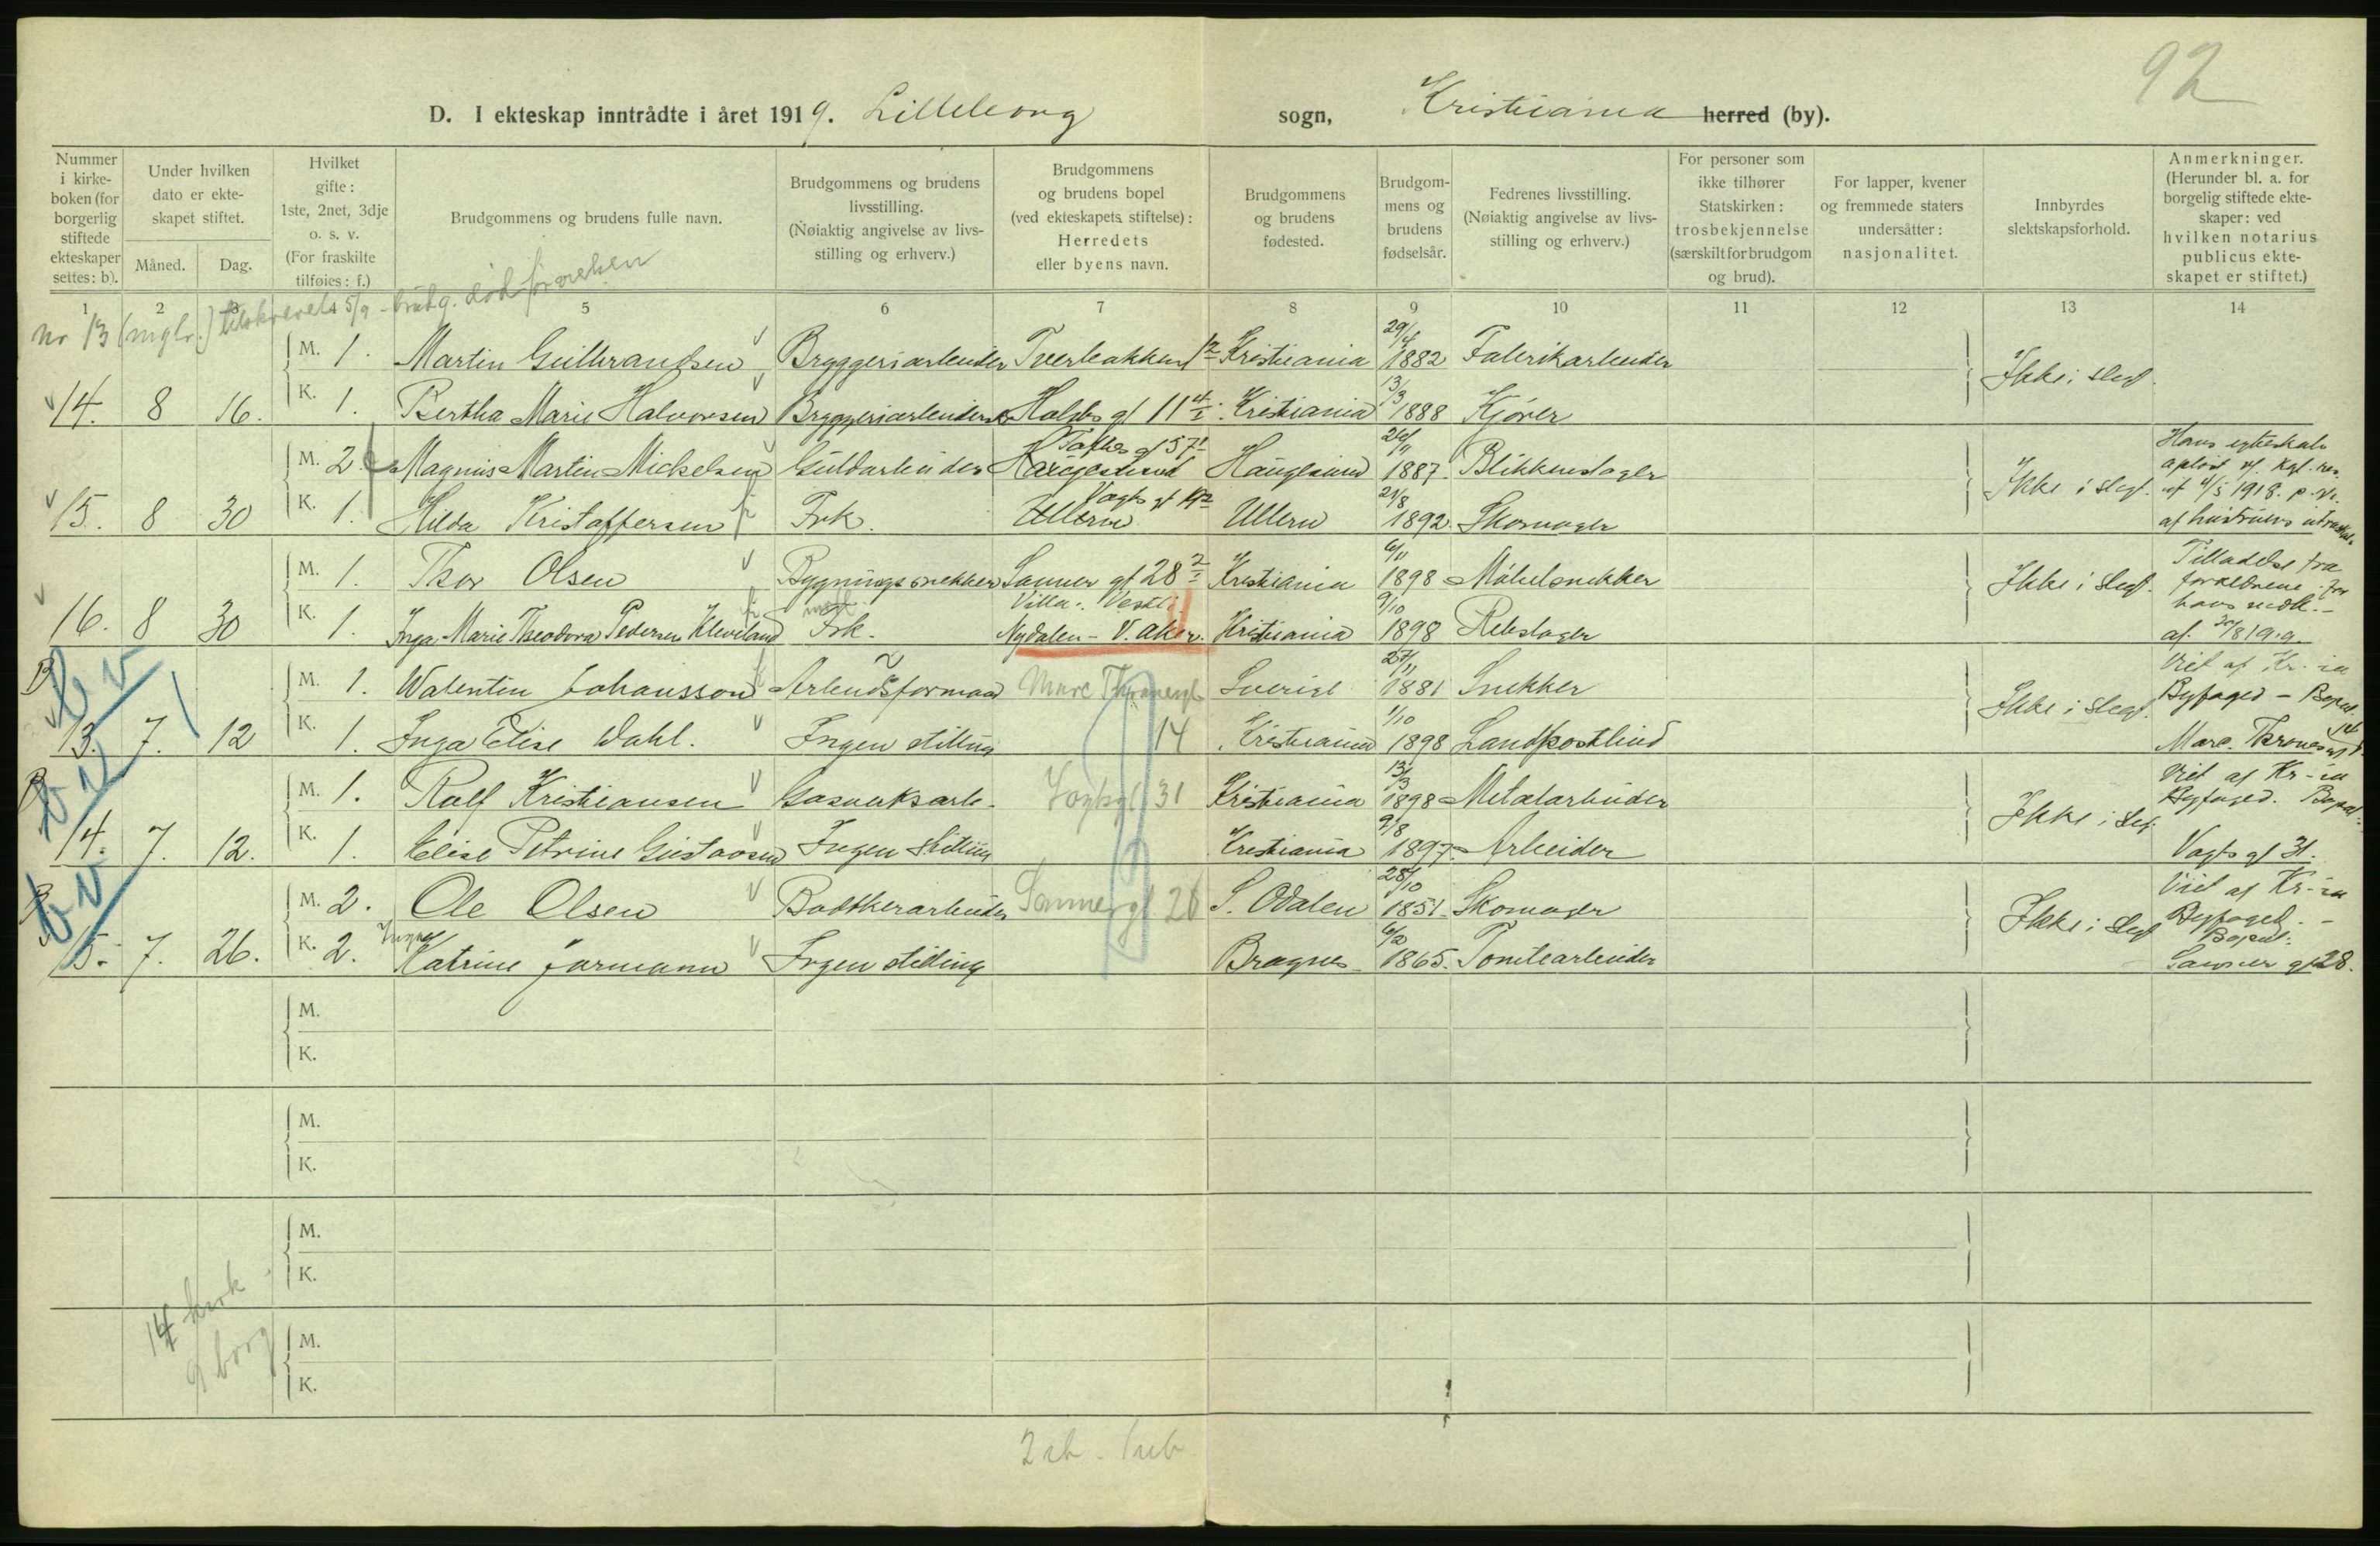 92
D. I ekteskap inntrådte i året 1919. Lilleborg sogn, Kristiania herred (by).
Nummer i kirkeboken (for borgerlig stiftede ekteskaper settes: b).
Under hvilken dato er ekteskapet stiftet.
Måned. Dag.
Hvilket gifte: 1ste, 2net, 3dje o. s. v. (For fraskilte tilføies: f.)
Brudgommens og brudens fulle navn.
Brudgommens og brudens livsstilling. (Nøiaktig angivelse av livsstilling og erhverv.)
Brudgommens og brudens bopel (ved ekteskapets stiftelse): Herredets eller byens navn.
Brudgommens og brudens fødested.
Brudgommens og brudens fødselsår.
Fedrenes livsstilling. (Nøiaktig angivelse av livsstilling og erhverv.)
For personer som ikke tilhører Statskirken: trosbekjennelse (særskilt for brudgom og brud).
For lapper, kvener og fremmede staters undersåtter: nasjonalitet.
Innbyrdes slektskapsforhold.
Anmerkninger. (Herunder bl. a. for borgelig stiftede ekteskaper: ved hvilken notarius publicus ekteskapet er stiftet.)
1 2 3 4 5 6 7 8 9 10 11 12 13 14
nr 13 (mglr.) tilskrevet 5/9 - brudg. død
M. 1. Martin Gulbrandsen Bryggeriarbeider Tverbakken 12 Kristiania 29/4 1882 Fabrikarbeider
Ikke i slegt.
14. 8 16. K. 1. Bertha Marie Halvorsen Bryggeriarbeiderske gt 11 4/I Kristiania 13/3 1888 Kjører
M. 2. Magnus Martin Mickelsen Guldarbeider Toftes gt 57 Haugesund Haugesund 26/11 1887. Blikkenslager
Ikke i slegt. Hans egteskab opløst af kgl. res. af 4/5 1918. p. gr. af hustruens
15. 8 30 K. 1. Hilda Kristoffersen Frk. Vogts gt Ullern Ullern 21/8 1892. Skomager
M. 1. Thor Olsen Bygningssnekker Sanner gt 28 2/I Kristiania 6/11 1898 Møbelsnekker
Ikke i slegt. Tilladelse fra forældrene for hans vedk. - af. 20/8 1919.
16. 8 30 K. 1. Inga Marie Theodora Pedersen Kleveland Frk. Villa Vestli. Nydalen - V. Aker. Kristiania 9/10 1898 Rebslager
B b v
M. 1. Walentin Johansson Arbeidsformand Marc Thranesgt Sverige 27/11 1881 Snekker
Ikke i slegt. Viet af Kr.-ia Byfoged - Bopæl Marc. Thranes gt 14
13. 7. 12 K. 1. Inga Elise Dahl. Ingen stilling 14 Kristiania 1/10 1898 Landpostbud
B b v
M. 1. Rolf Kristiansen Gasverksarb. Vogtsgt 31 Kristiania 13/3 1898 Metalarbeider
Ikke i sleg. Viet af Kr-ia Byfoged. Bopæl: Vogts gt 31.
14. 7. 12. K. 1. Elise Petrine Gustavsen Ingen stilling Kristiania 9/8 1897. Arbeider
B b v
M. 2. Ole Olsen Bødtkerarbeider Sannergt 28 S. Odalen 28/10 1851. Skomager
Ikke i slegt Viet af Kr-ia Byfoged. - Bopæl: Sanner gt 28.
15. 7. 26. K. 2. Katrine Jarmann Ingen stilling Bragnes 6/2 1865. Tomtearbeider
M.
K.
M.
K.
M.
K.
M.
K.
14 kirk
9 borg